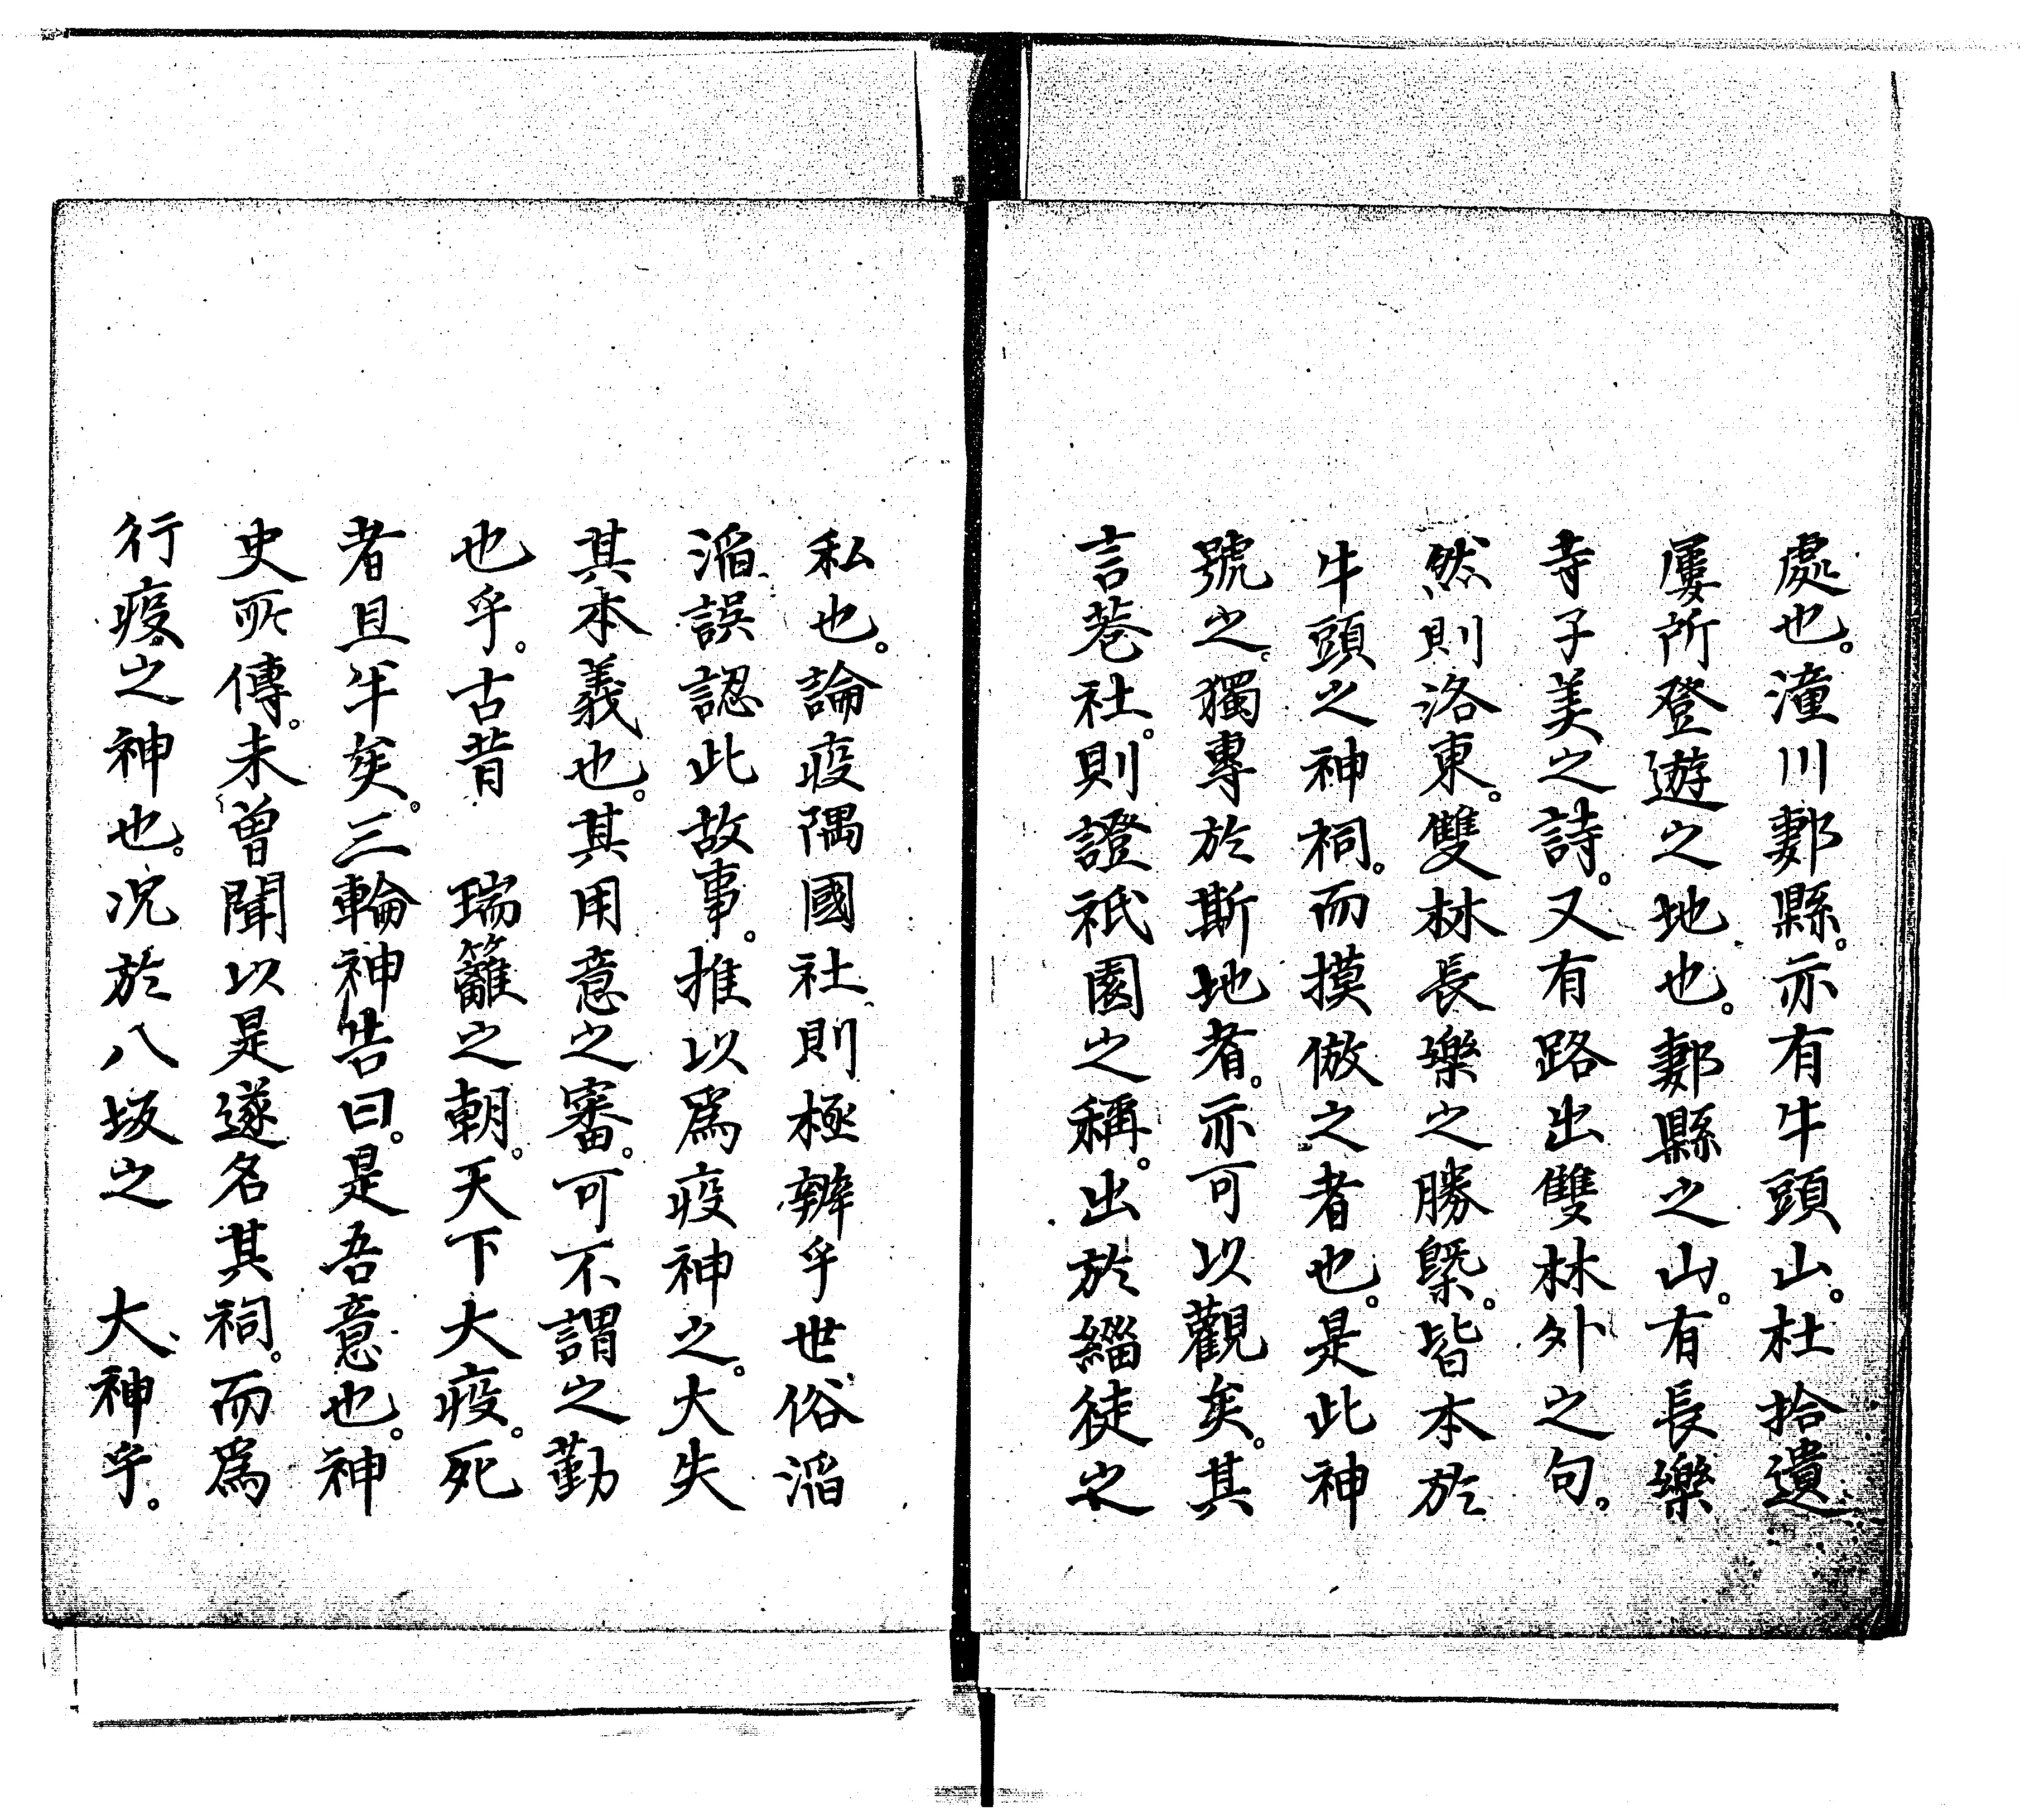 處也。潼川郪縣。亦有牛頭山。杜拾遺
屢所登遊之地也。郪縣之山。有長樂
寺子美之詩。又有路出雙林外之句。
然則洛東。雙林長樂之勝槩。皆本於
牛頭之神祠。而摸倣之者也。是此神
號之。獨專於斯地者。亦可以觀矣。其
言巷社。則證祇園之稱。出於緇徒之
私也。論疫隅國社。則極辨乎世俗滔
滔。誤認此故事。推以爲疫神之。大失
其本義也。其用意之審。可不謂之勤
也乎。古昔　瑞籬之朝。天下大疫。死
者且半矣。三輪神告曰。是吾意也。神
史所傳。未曽聞以是遂名其祠。而爲
行疫之神也。况於八坂之　大神乎。